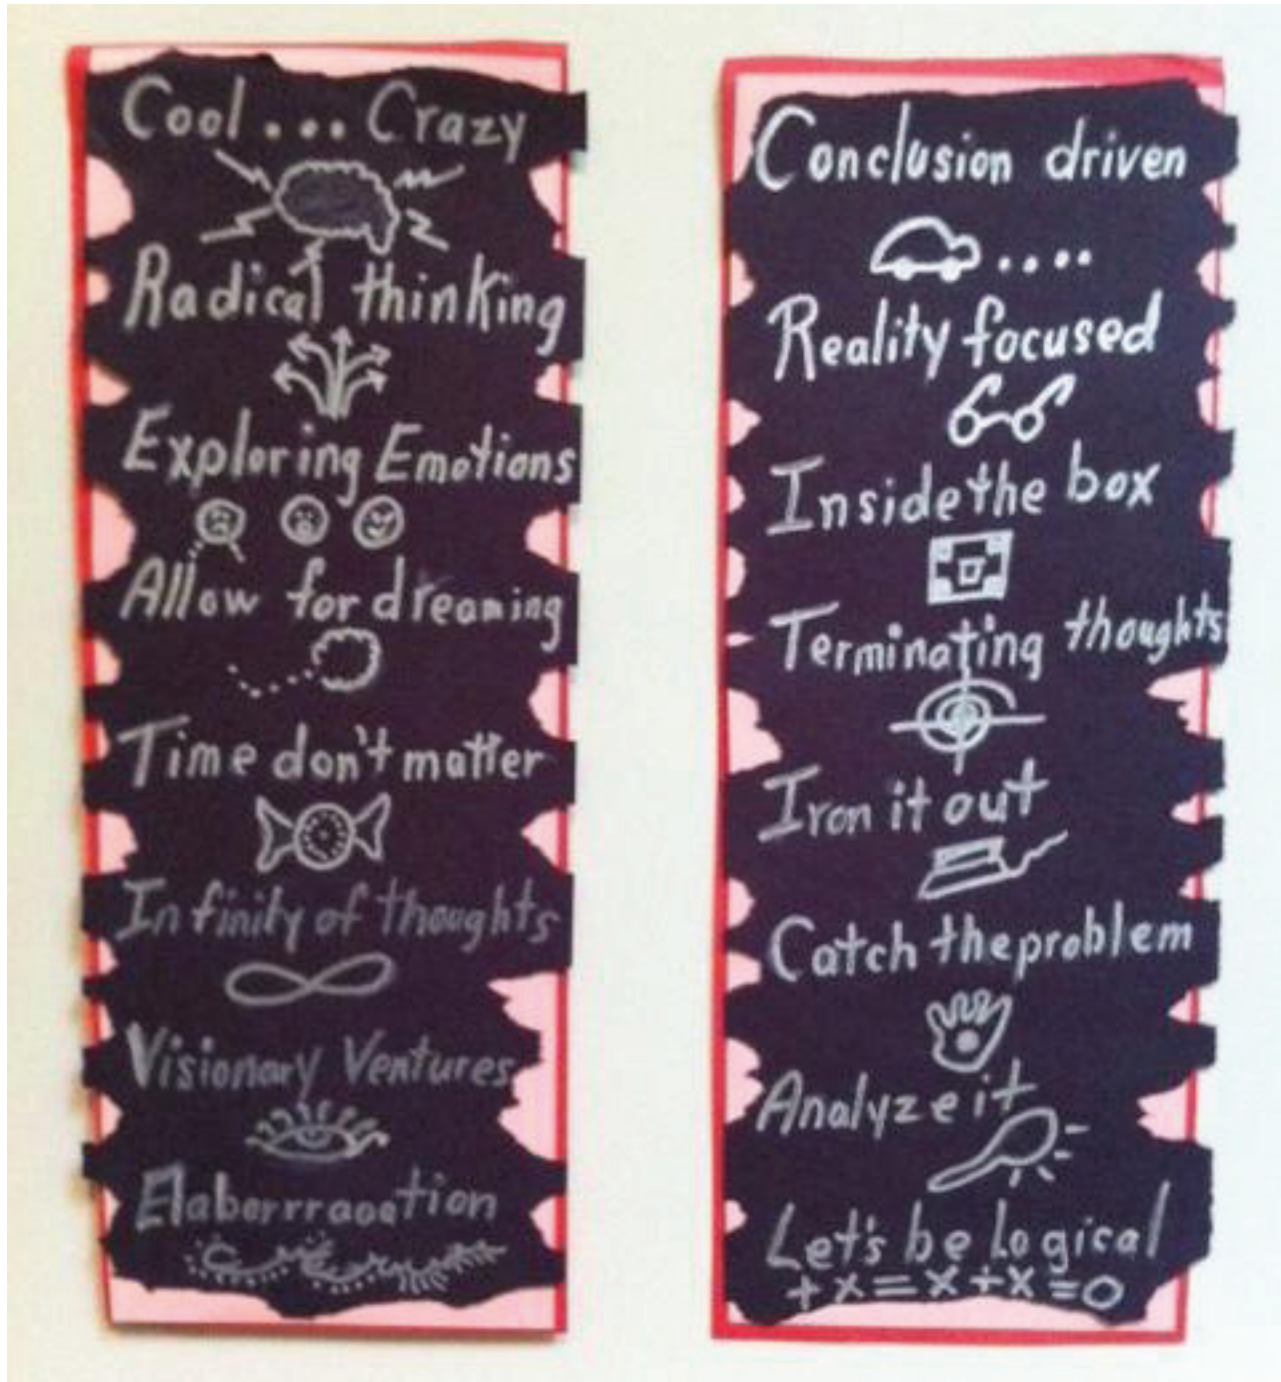 Cool... Crazy
Radical thinking
Exploring Emotions
Allow for dreaming
Time don't matter
Infinity of thoughts
Visionary Ventures
Elaborrraoation
Conclusion driven
....
Reality focused
Inside the box
Terminating thoughts
Iron it out
Catch the problem
Analyze it
Let's be logical
+x=x+x=0